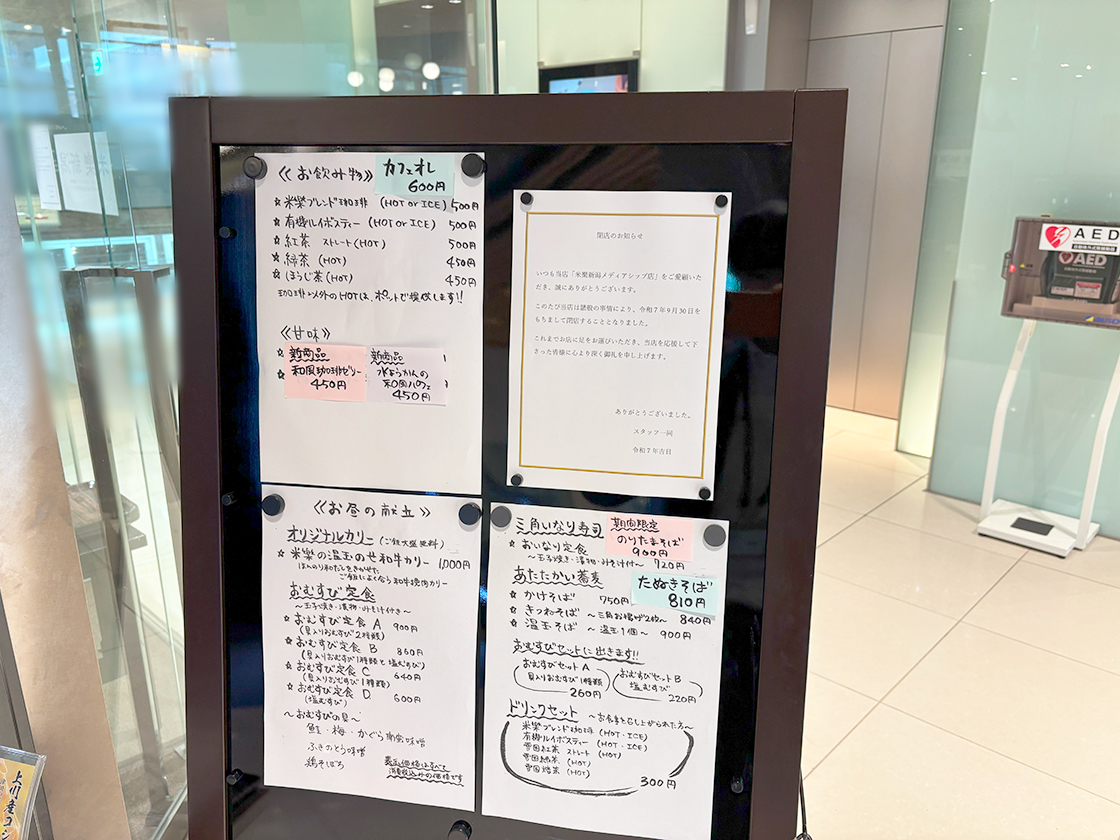 《お飲み物》
カフェオレ
600円
☆ 米樂ブレンド珈琲 (HOT or ICE) 500円
☆ 有機ルイボスティー (HOT or ICE) 500円
☆ 紅茶 ストレート(HOT) 500円
☆ 緑茶 (HOT) 450円
☆ ほうじ茶(HOT) 450円
珈琲以外のHOTは、ポットで提供します!!
《甘味》
☆ 新商品
☆ 和風珈琲ゼリー
450円
新商品
水ようかんの
和風パフェ
450円
閉店のお知らせ
いつも当店「米樂新潟メディアシップ店」をご愛顧いた
だき、誠にありがとうございます。
このたび当店は諸般の事情により、令和7年9月30日を
もちまして閉店することとなりました。
これまでお店に足をお運びいただき、当店を応援して下
さった皆様に心より深く御礼を申し上げます。
ありがとうございました。
スタッフ一同
令和7年吉日
《お昼の献立》
オリジナルカリー (ご飯大盛無料)
☆ 米樂の温玉のせ和牛カリー 1,000円
ほんのり和だしをきかせた
ご飯によく合う和牛挽肉カリー
おむすび定食
～玉子焼き・漬物・みそ汁付き～
☆ おむすび定食 A 900円
(具入りおむすび2種類)
☆ おむすび定食 B 860円
(具入りおむすび1種類と塩むすび)
☆ おむすび定食 C 640円
(具入りおむすび1種類)
☆ おむすび定食 D 600円
(塩むすび)
～おむすびの具～
鮭・梅・かぐら南蛮味噌
ふきのとう味噌
鶏そぼろ
表示価格はすべて
消費税込みの価格です
三角いなり寿司
期間限定
のりたまそば
900円
☆ おいなり定食
～玉子焼き・漬物・みそ汁付～ 720円
あたたかい蕎麦
たぬきそば
810円
☆ かけそば 750円
☆ きつねそば ～三角お揚げ2枚～ 840円
☆ 温玉そば ～温玉1個～ 900円
おむすびセットに出きます!!
おむすびセット A
具入りおむすび1種類
260円
おむすびセット B
塩むすび
220円
ドリンクセット ～お食事を召し上がられた方へ～
米樂ブレンド珈琲 (HOT・ICE)
有機ルイボスティー (HOT・ICE)
雪国紅茶 ストレート (HOT)
雪国緑茶 (HOT)
雪国焙茶 (HOT)
300円
AED
自動体外式除細動器
AED
上川産コシ